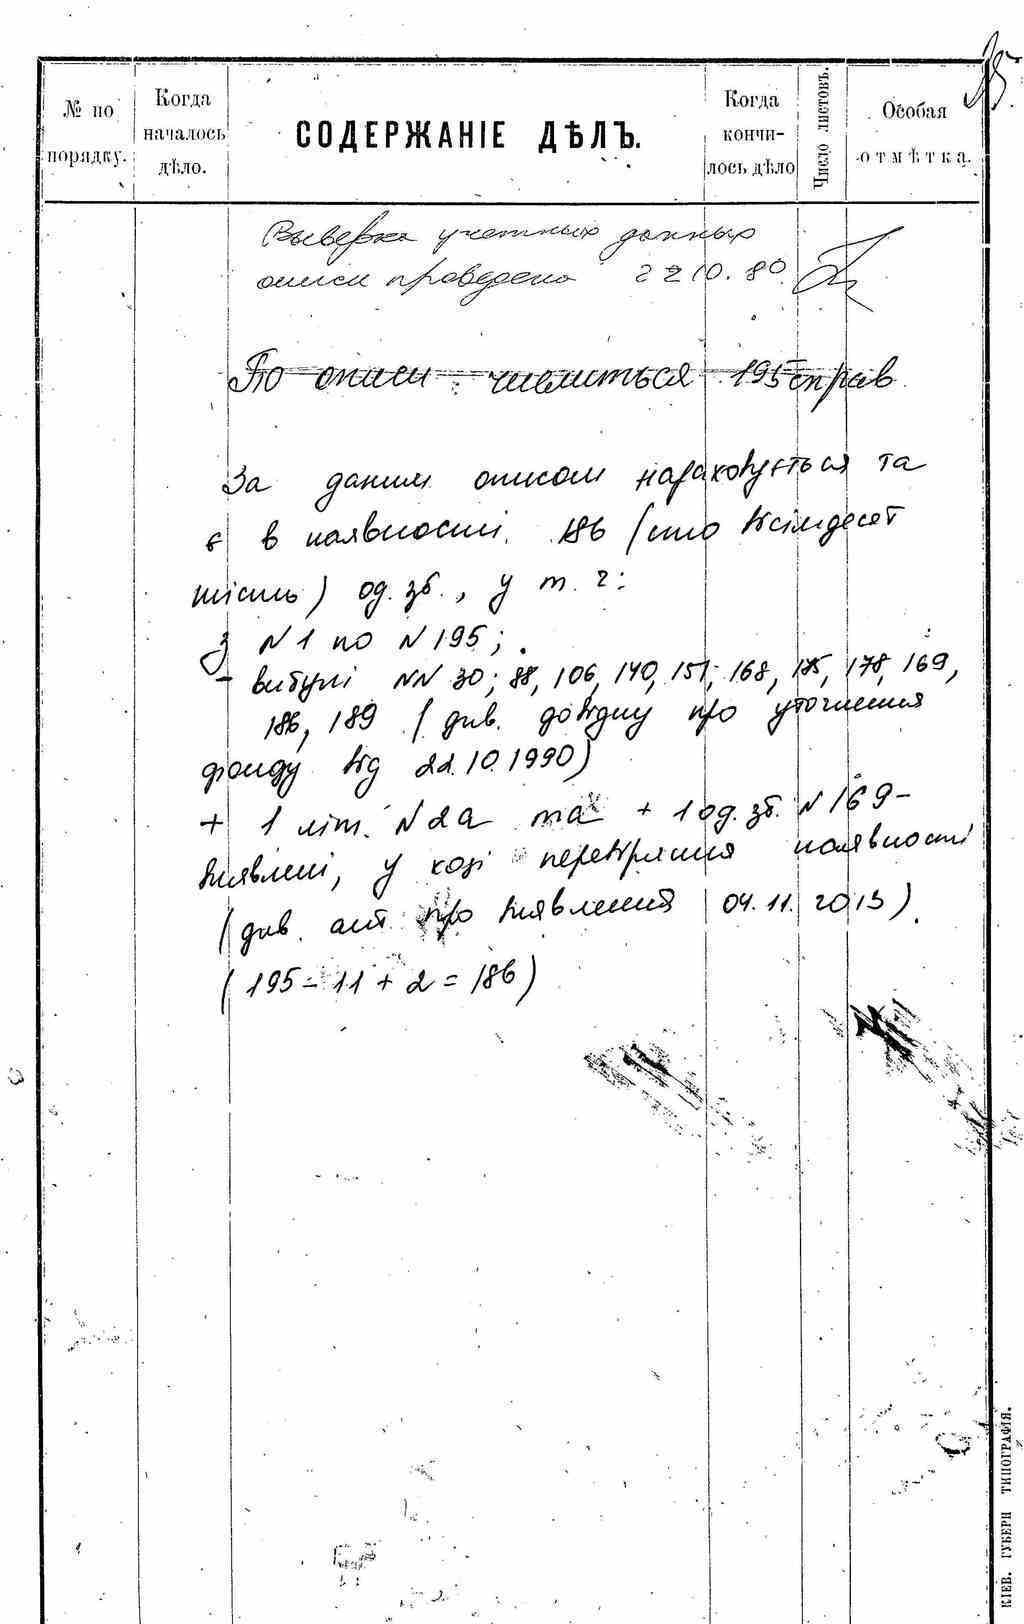 № по порядку.
Когда началось дѣло.
СОДЕРЖАНІЕ ДѢЛЪ.
Когда кончи-лось дѣло
Число листовъ.
Особая отмѣтка.
Выверка учетных данных
описи проведена 22 10. 80.
По описи числиться 195 справ
За даним описом нараховується та
є в наявності 186 (сто вісімдесят
шість) од. зб., у т. ч:
з N 1 по N 195;
- вибулі NN 30; 88, 106, 140, 151, 168, 175, 178, 169,
186, 189 (див. довідку про уточнення
фонду від 22.10.1990)
+ 1 літ. N 2а та + 1 од. зб. N 169-
виявлені, у ході перевіряння наявності
(див. акт про виявлення 04.11.2013).
(195 - 11 + 2 = 186)
КІЕВ. ГУБЕРН ТИПОГРАФІЯ.